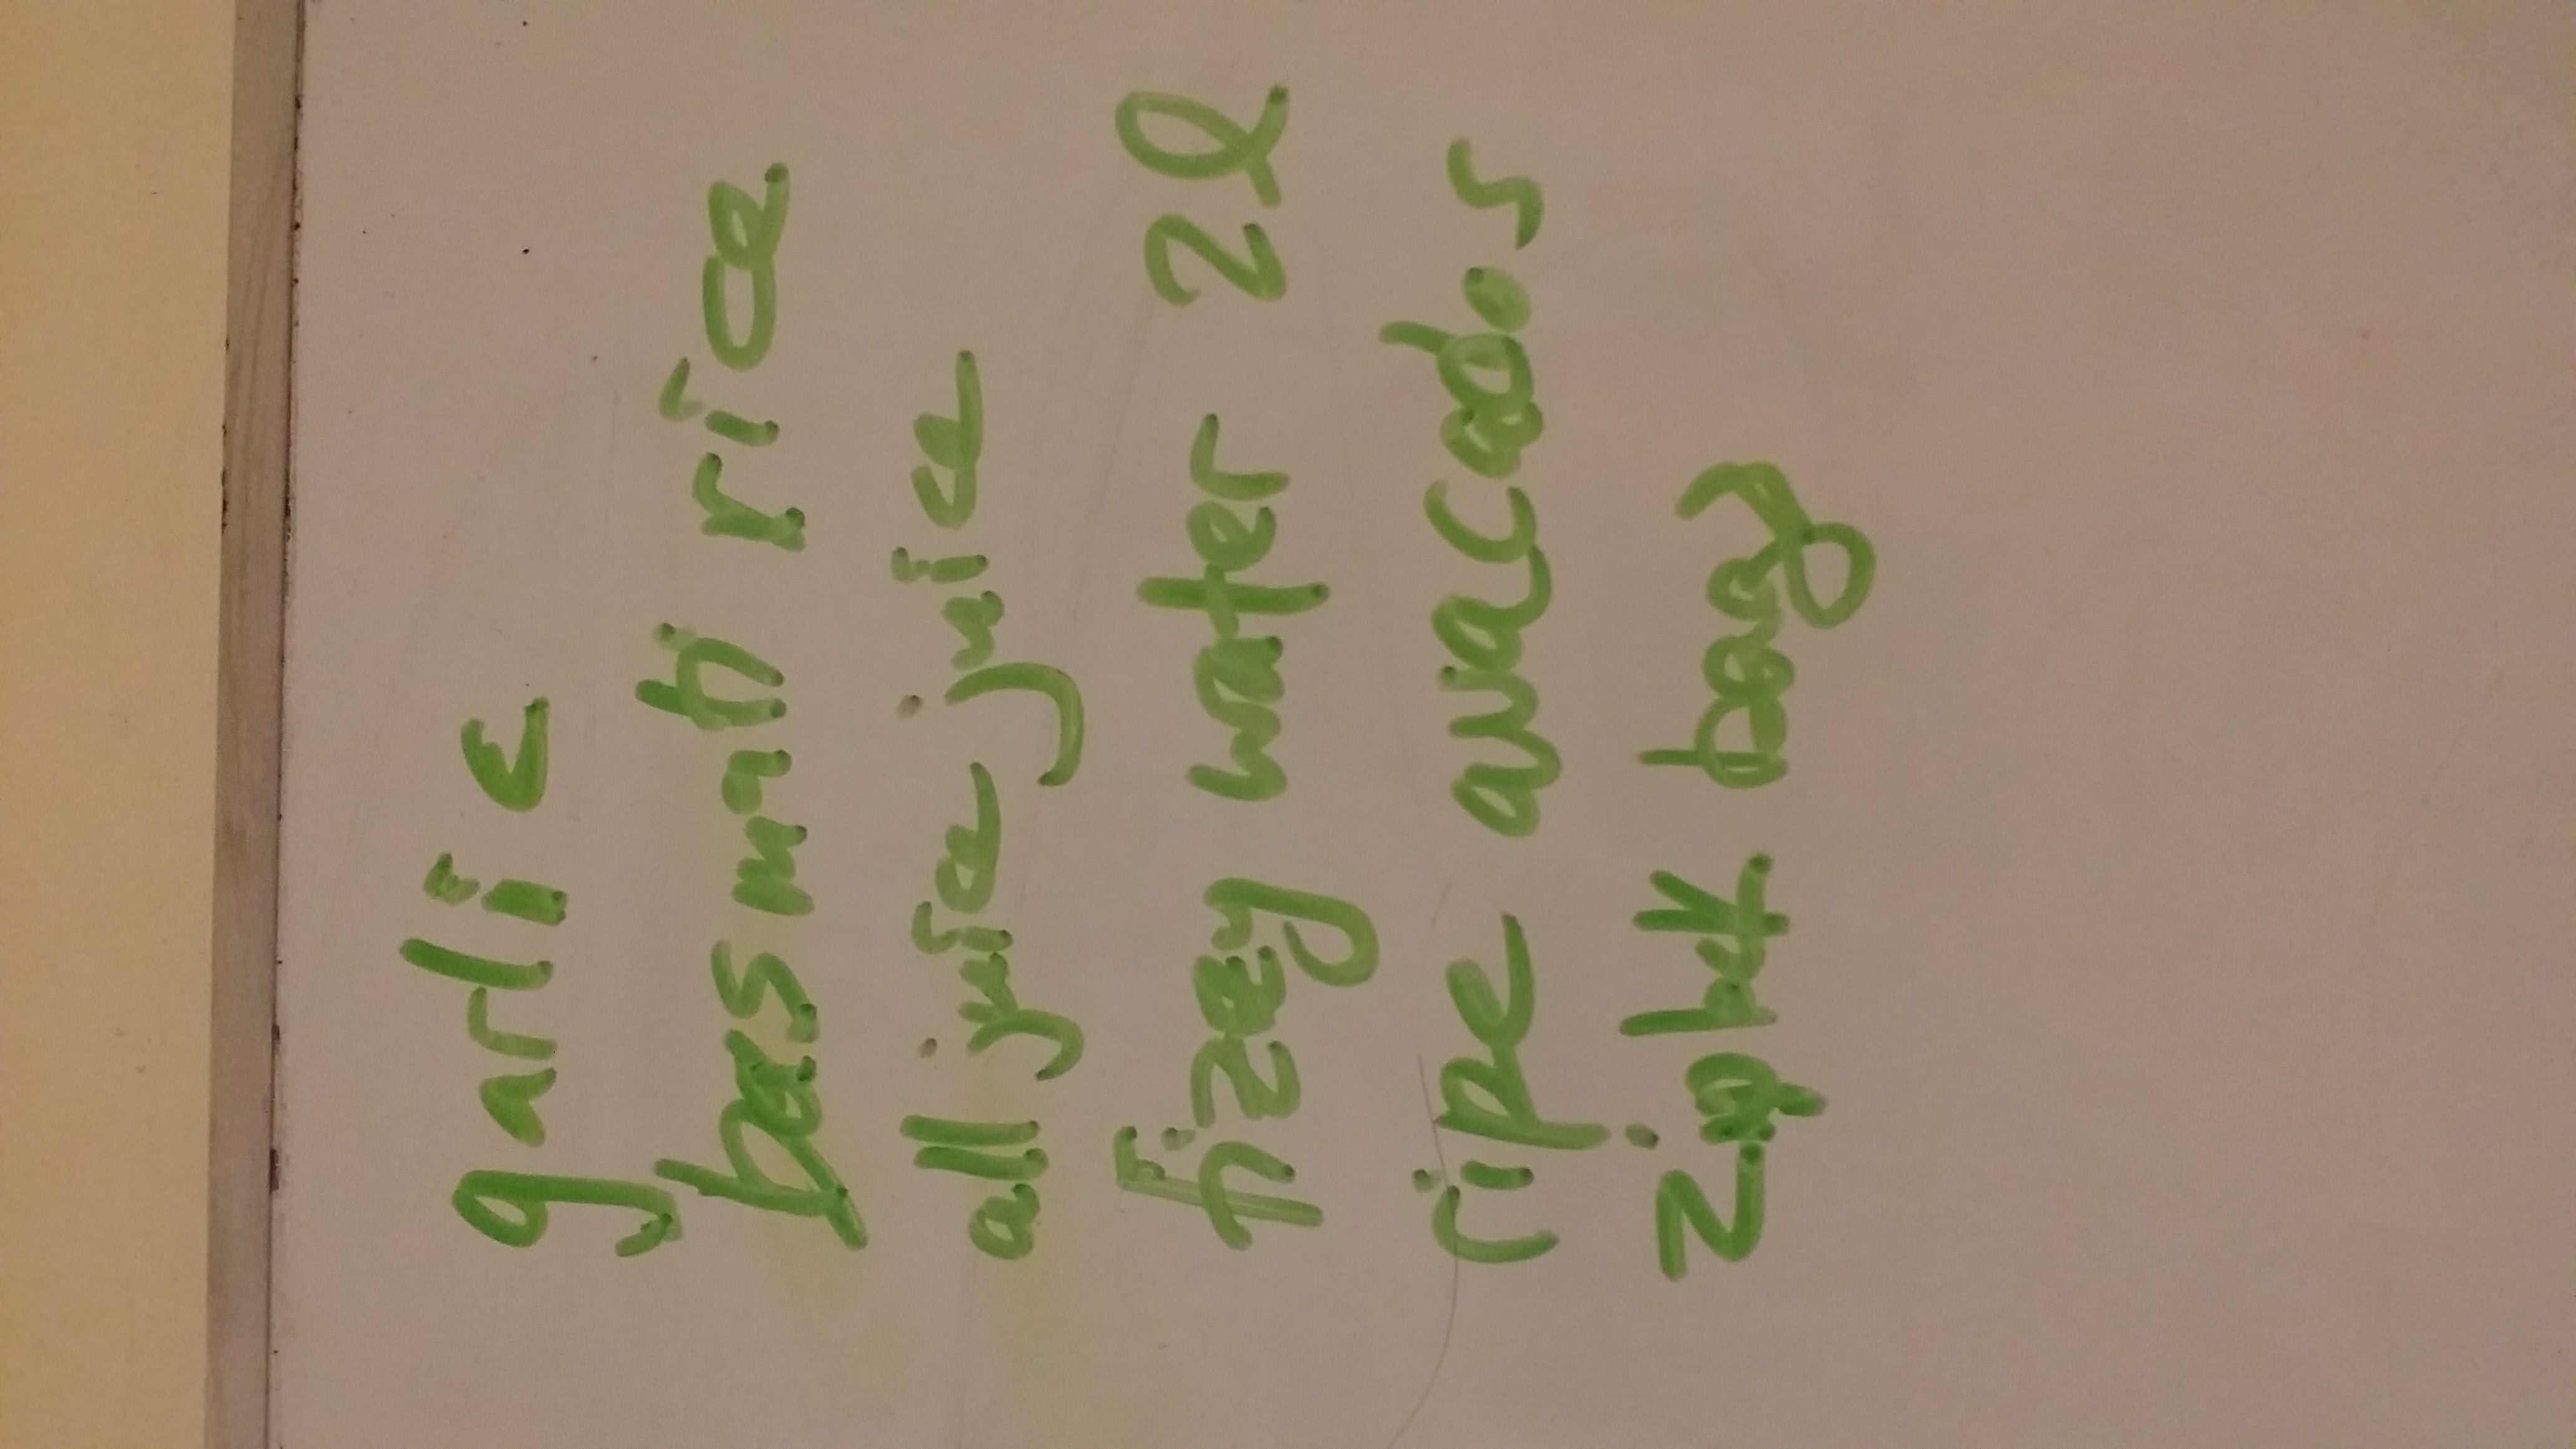 garlic
basmati rice
all juice juice
fizzy water 2l
ripe avacados
ziplock bag